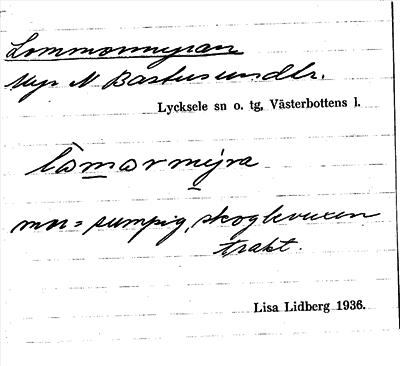 Lommormyran
Myr N Bastusundtr.
Lycksele sn o. tg, Västerbottens l.
lomormyra
myr = sumpig, skogbevuxen
trakt.
Lisa Lidberg 1936.